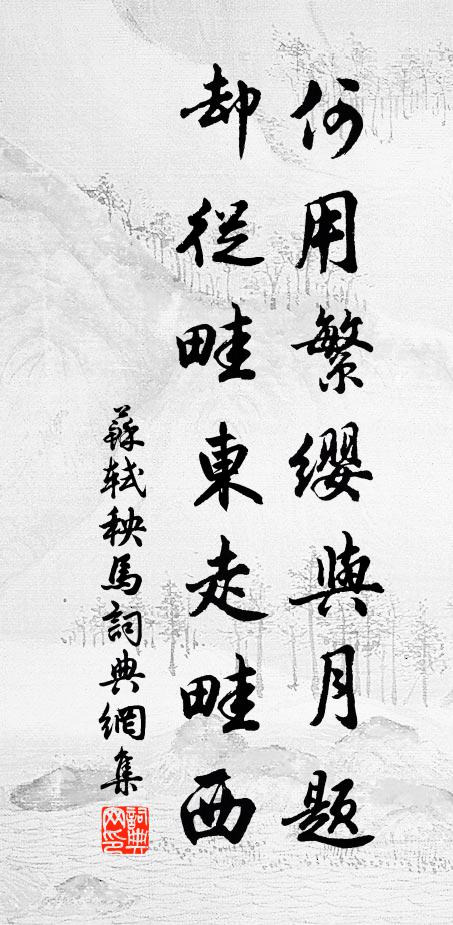 何用繁纓與月題
却從畦東走畦西
蘇軾秧馬詞典網集
詞典网印